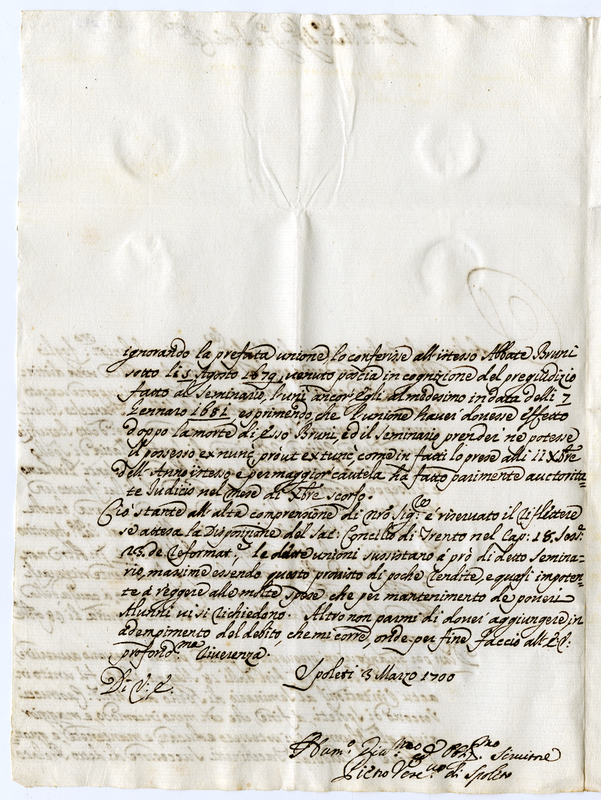 ignorando la prefata unione lo conferisse all'istesso Abbate Bruni
sotto li 5 Agosto 1679, venuto poscia in cognizione del pregiudizio
fatto al Seminario, l'unì ancor egli al medesimo in data delli 7
Gennaro 1681 esprimendo che l'unione haver dovesse effetto
doppo la morte di esso Bruni, ed il Seminario prender ne potesse
il possesso ex nunc, prout ex tunc, come in fatti lo prese alli 11 Xbre
dell'Anno istesso e per maggior cautela ha fatto parimente auctorita-
te Iudicis nel mese di Xbre scorso.
Ciò stante all'alta comprensione di è riservato il riflettere
se attesa la Disposizione del Sac: Concilio di Trento nel Cap: 18. Sess:
23. de Reformat: le dette unioni sussistano à prò di detto Semina-
rio, massime essendo questo provisto di poche rendite, e quasi impoten-
te à reggere alle molte spese che per mantenimento de poveri
Alunni vi si richiedono. Altro non parmi di dover aggiungere in
adempimento del debito, che mi corre, onde per fine faccio all'E.V.
profondma riverenza.
Di V: E. Spoleti 3 Marzo 1700
Humo Servitre
Pietro di Spoleto